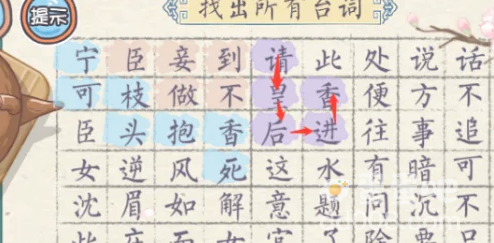 提示
找出所有台词
宁臣妾到请此处说话
可枝做不皇香便方不
臣头抱香后进往事追
女逆风死这水有暗可
沈眉如解意题问沉不